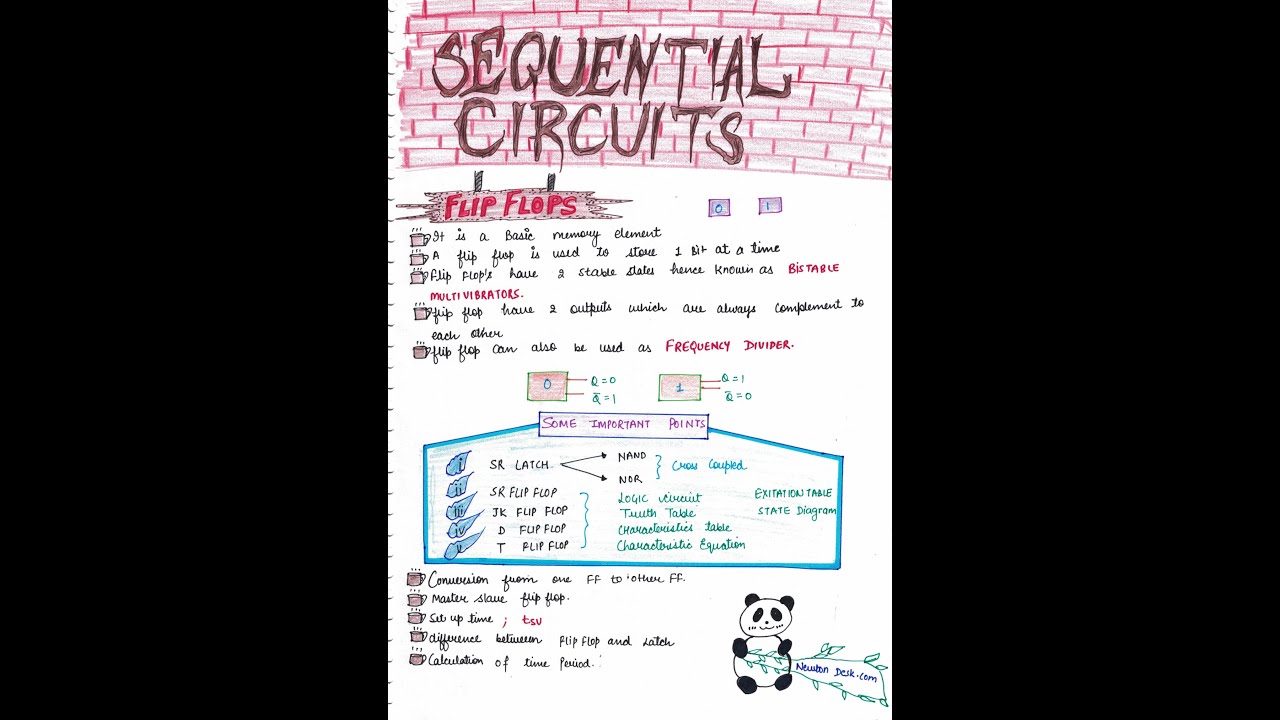 SEQUENTIAL
CIRCUITS
FLIP FLOPS
0 1
It is a Basic memory element
A flip flop is used to store 1 Bit at a time
Flip Flop's have 2 stable states hence known as BISTABLE
MULTIVIBRATORS.
flip flop have 2 outputs which are always complement to
each other
flip flop can also be used as FREQUENCY DIVIDER.
0 Q = 0 1 Q = 1
Q̅ = 1 Q̅ = 0
SOME IMPORTANT POINTS
i SR LATCH NAND
NOR
Cross Coupled
ii SR FLIP FLOP LOGIC circuit EXITATION TABLE
iii JK FLIP FLOP Truth Table STATE Diagram
iv D FLIP FLOP Characteristics table
v T FLIP FLOP Characteristic Equation
Conversion from one FF to other FF.
Master slave flip flop.
Set up time ; tsu
difference between FlipFlop and Latch
Calculation of time Period.
Newton Desk.com